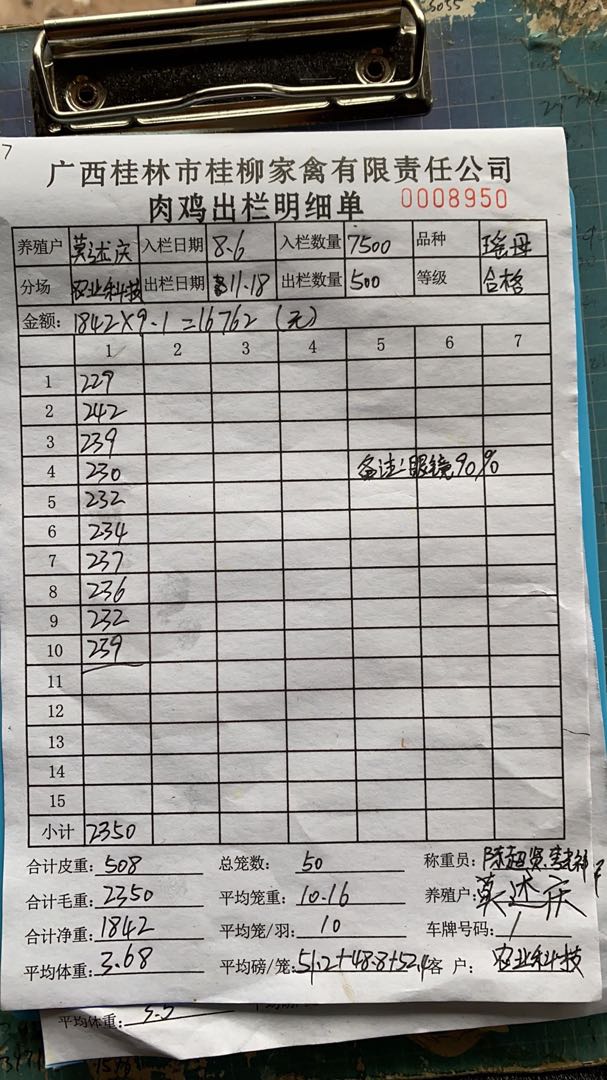 广西桂林市桂柳家禽有限责任公司
肉鸡出栏明细单 0008950
养殖户 莫述庆 入栏日期 8.6 入栏数量 7500 品种 瑶母
分场 农业科技 出栏日期 11.18 出栏数量 500 等级 合格
金额: 1842×9.1=16762(元)
1 2 3 4 5 6 7
1 229
2 242
3 239
4 230 备注:眼镜90%
5 232
6 234
7 237
8 236
9 232
10 239
11
12
13
14
15
小计 2350
合计皮重: 508 总笼数: 50 称重员: 陈超贤
合计毛重: 2350 平均笼重: 10.16 养殖户: 莫述庆
合计净重: 1842 平均笼/羽: 10 车牌号码: /
平均体重: 3.68 平均磅/笼: 51.2+48.8+52.4 客 户: 农业科技
平均体重: